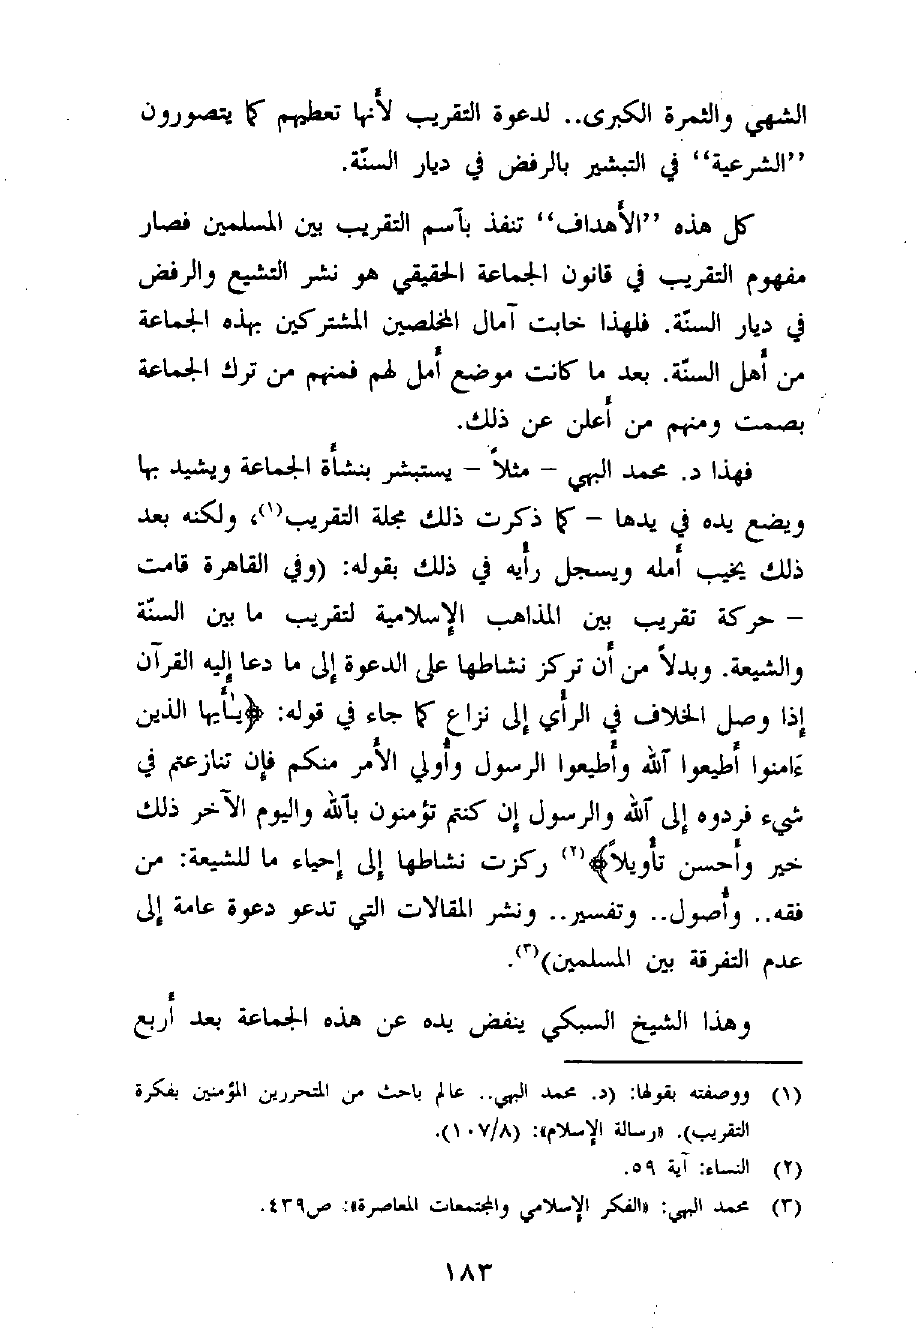 الشهي والثمرة الكبرى.. لدعوة التقريب لأنها تعطيهم كما يتصورون
’’الشرعية‘‘ في التبشير بالرفض في ديار السنّة.
كل هذه ’’الأهداف‘‘ تنفذ بآسم التقريب بين المسلمين فصار
مفهوم التقريب في قانون الجماعة الحقيقي هو نشر التشيع والرفض
في ديار السنّة. فلهذا خابت آمال المخلصين المشتركين بهذه الجماعة
من أهل السنّة. بعد ما كانت موضع أمل لهم فمنهم من ترك الجماعة
بصمت ومنهم من أعلن عن ذلك.
فهذا د. محمد البهي – مثلاً – يستبشر بنشأة الجماعة ويشيد بها
ويضع يده في يدها – كما ذكرت ذلك مجلة التقريب(١)، ولكنه بعد
ذلك يخيب أمله ويسجل رأيه في ذلك بقوله: (وفي القاهرة قامت
– حركة تقريب بين المذاهب الإسلامية لتقريب ما بين السنّة
والشيعة. وبدلاً من أن تركز نشاطها على الدعوة إلى ما دعا إليه القرآن
إذا وصل الخلاف في الرأي إلى نزاع كما جاء في قوله: ﴿يـٰأيها الذين
ءامنوا أطيعوا آلله وأطيعوا الرسول وأولي الأمر منكم فإن تنازعتم في
شيء فردوه إلى آلله والرسول إن كنتم تؤمنون بآلله واليوم الآخر ذلك
خير وأحسن تأويلاً﴾(٢) ركزت نشاطها إلى إحياء ما للشيعة: من
فقه.. وأصول.. وتفسير.. ونشر المقالات التي تدعو دعوة عامة إلى
عدم التفرقة بين المسلمين)(٣).
وهذا الشيخ السبكي ينفض يده عن هذه الجماعة بعد أربع
(١) ووصفته بقولها: (د. محمد البهي.. عالم باحث من المتحررين المؤمنين بفكرة
التقريب). «رسالة الإسلام»: (١٠٧/٨).
(٢) النساء: آية ٥٩.
(٣) محمد البهي: «الفكر الإسلامي والمجتمعات المعاصرة»: ص٤٣٩.
١٨٣